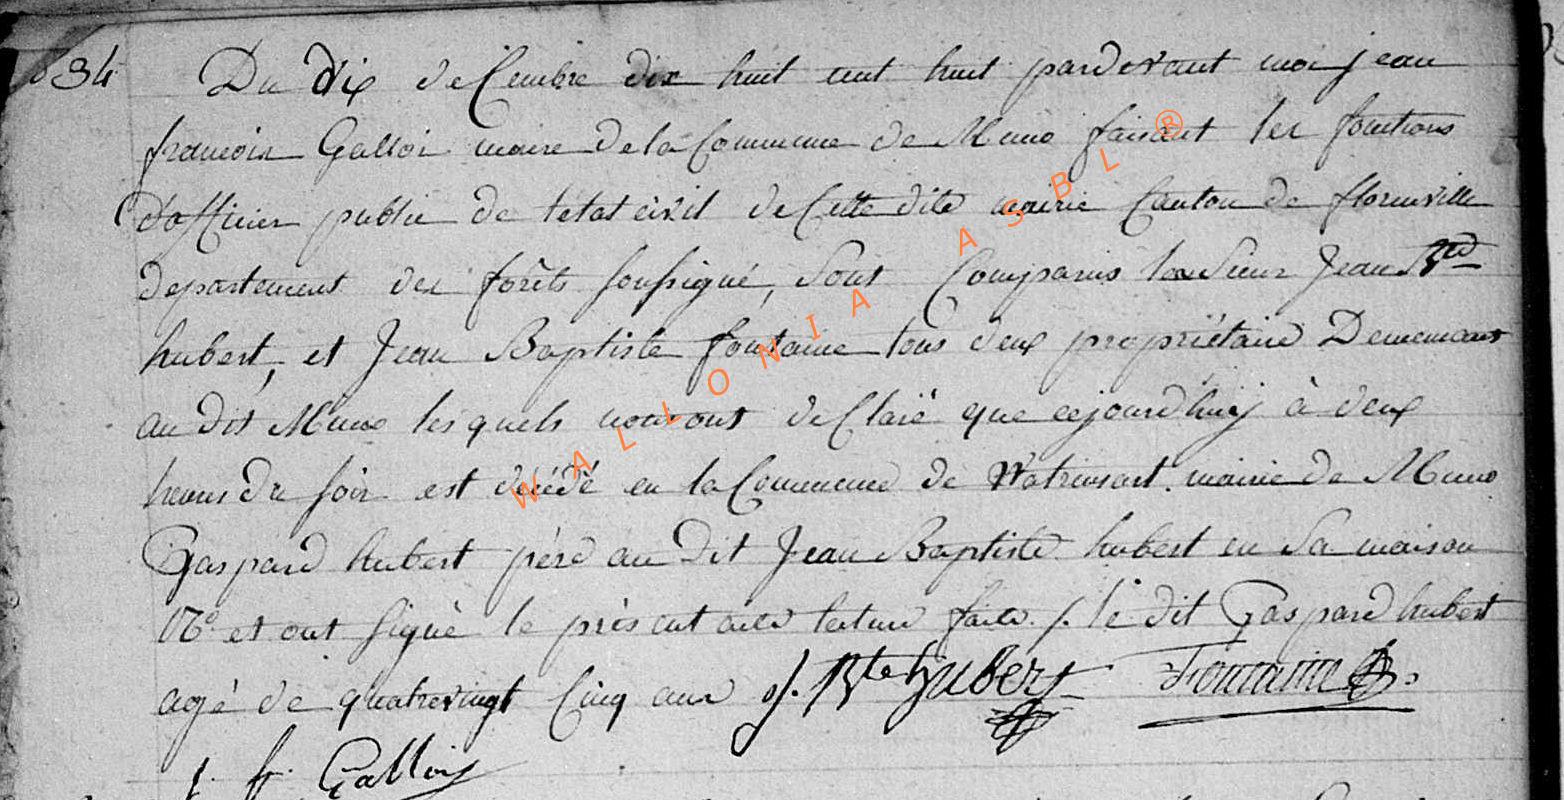 34
Du dix decembre dix huit cent huit pardevant moi jean
francois Gallois maire de la Commune de Muno faisant les fonctions
d'officier public de letat civil de Cette dite mairie Canton de florenville
departement des forêts soussigné, Sont Comparus les Sieur Jean Bte
hubert, et Jean Baptiste fontaine tous deux propriétaire Demeurant
au dit Muno lesquels nous ont declaré que cejourd'huy à deux
heures du soir est décédé en la Commune de Watrinsart mairie de Muno
Gaspard hubert père au dit Jean Baptiste hubert en Sa maison
No et ont signé le présent acte lecture faite /. le dit Gaspard hubert
agé de quatrevingt Cinq ans J. Bte hubert Fontaine
j. f. Gallois
WALLONIA ASBL ®